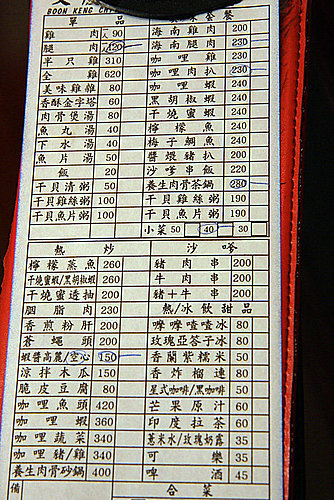 BOON KENG CH
單品
雞肉 人90
腿肉 人120
半只雞 310
全雞 620
美味雞雜 80
香酥金字塔 60
肉骨煲湯 80
魚丸湯 40
下水湯 40
魚片湯 50
飯 20
干貝清粥 50
干貝雞絲粥 100
干貝魚片粥 100
套餐
海南雞肉 200
海南腿肉 230
咖哩雞 230
咖哩肉扒 230
咖哩蝦 240
黑胡椒蝦 240
干燒蜜蝦 240
檸檬魚 240
梅子鯛魚 240
醬煨豬扒 200
沙嗲串飯 220
養生肉骨茶鍋 280
干貝雞絲粥 190
干貝魚片粥 190
小菜 50 40 30
熱炒
檸檬蒸魚 260
干燒蜜蝦/黑胡椒蝦 260
干燒蜜透抽 200
胭脂肉 230
香煎粉肝 200
蒼蠅頭 200
蝦醬高麗/空心 150
涼拌木瓜 150
脆皮豆腐 80
咖哩魚頭 420
咖哩蝦 360
咖哩蔬菜 340
咖哩豬/雞 340
養生肉骨砂鍋 400
沙嗲
豬肉串 200
牛肉串 200
豬+牛串 200
熱/冰飲甜品
嚤嚤喳喳冰 80
玫瑰亞答子冰 80
香蘭紫糯米 50
香炸榴槤 80
星式咖啡/黑咖啡 50
芒果原汁 60
印度拉茶 60
薏米水/玫瑰奶露 35
可樂 35
啤酒 45
備
合菜